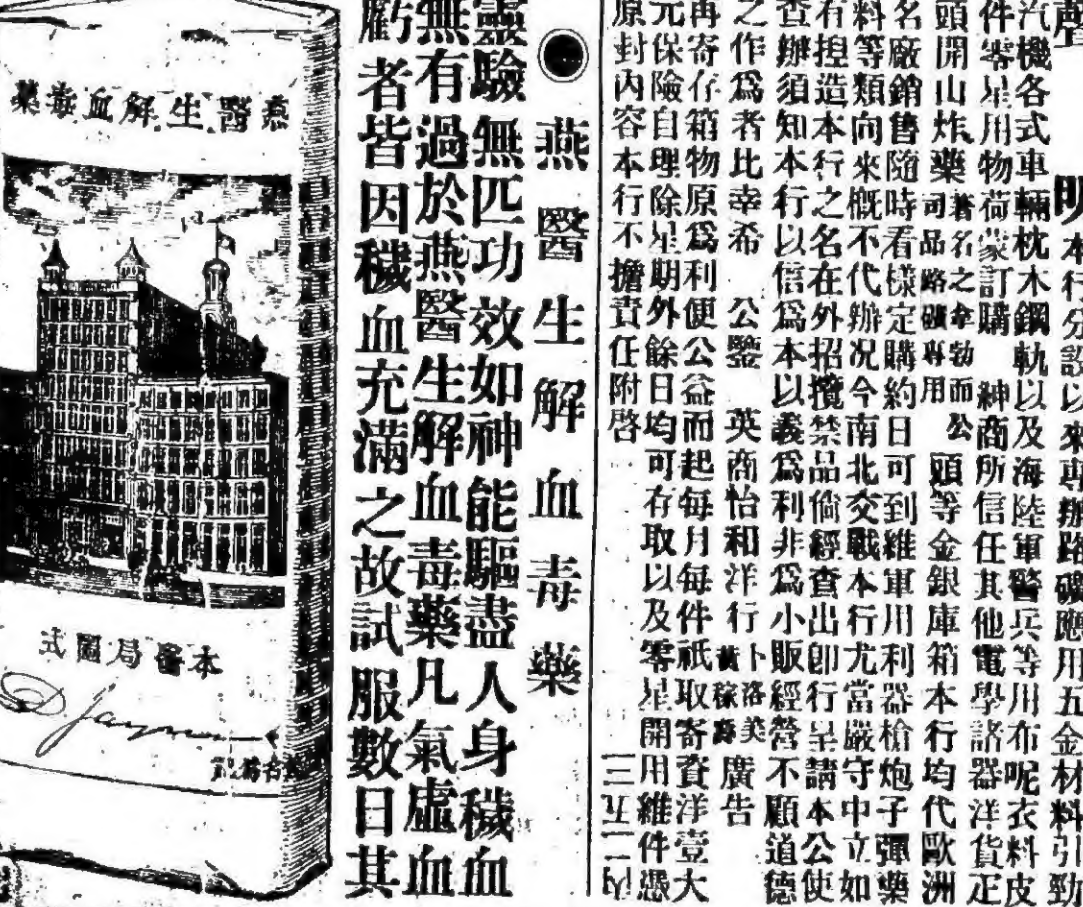 聲明
本行分設以來專辦路礦應用五金材料引勁
汽機各式車輛枕木鋼軌以及海陸軍警兵等用布呢衣料皮
件零星用物荷蒙訂購 紳商所信任其他電學諸器洋貨正
頭開山炸藥著名之拿勃而公司品路礦專用 頭等金銀庫箱本行均代歐洲
名廠銷售隨時看樣定購約日可到維軍用利器槍炮子彈藥
料等類向來概不代辦况今南北交戰本行尤當嚴守中立如
有揑造本行之名在外招攬禁品倘經查出卽行呈請本公使
查辦須知本行以信爲本以義爲利非爲小販經營不顧道德
之作爲者比幸希 公鑒 英商怡和洋行 廣告
再寄存箱物原爲利便公益而起每月每件祇取寄資洋壹大
元保險自理除星期外餘日均可存取以及零星開用維件憑
原封內容本行不擔責任附啓
●燕醫生解血毒藥
靈驗無匹功效如神能驅盡人身穢血
無有過於燕醫生解血毒藥凡氣虛血
虧者皆因穢血充滿之故試服數日其
燕醫生解血毒藥
本醫局圖式
D. Jayne